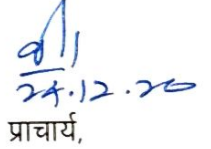 24.12.20
प्राचार्य,